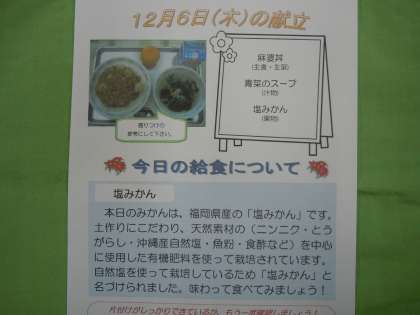 12月6日(木)の献立
麻婆丼
(主食・主菜)
青菜のスープ
(汁物)
塩みかん
(果物)
盛りつけの
参考にして下さい。
今日の給食について
塩みかん
本日のみかんは、福岡県産の「塩みかん」です。
土作りにこだわり、天然素材の(ニンニク・とう
がらし・沖縄産自然塩・魚粉・食酢など)を中心
に使用した有機肥料を使って栽培されています。
自然塩を使って栽培しているため「塩みかん」と
名づけられました。味わって食べてみましょう!
片付けがしっかりできているか、もう一度確認しましょう!